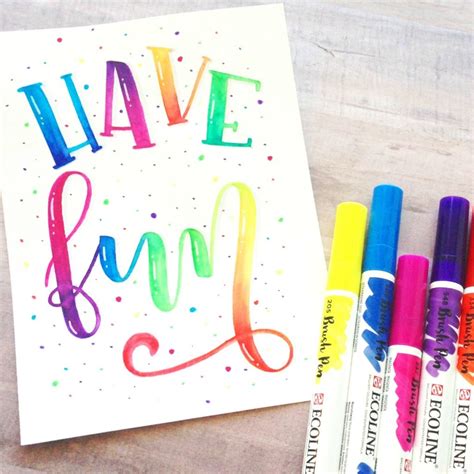 HAVE
fun
205 Brush Pen
ECOLINE
Brush Pen
ECOLINE
Brush Pen
ECOLINE
548 Brush Pen
ECOLINE